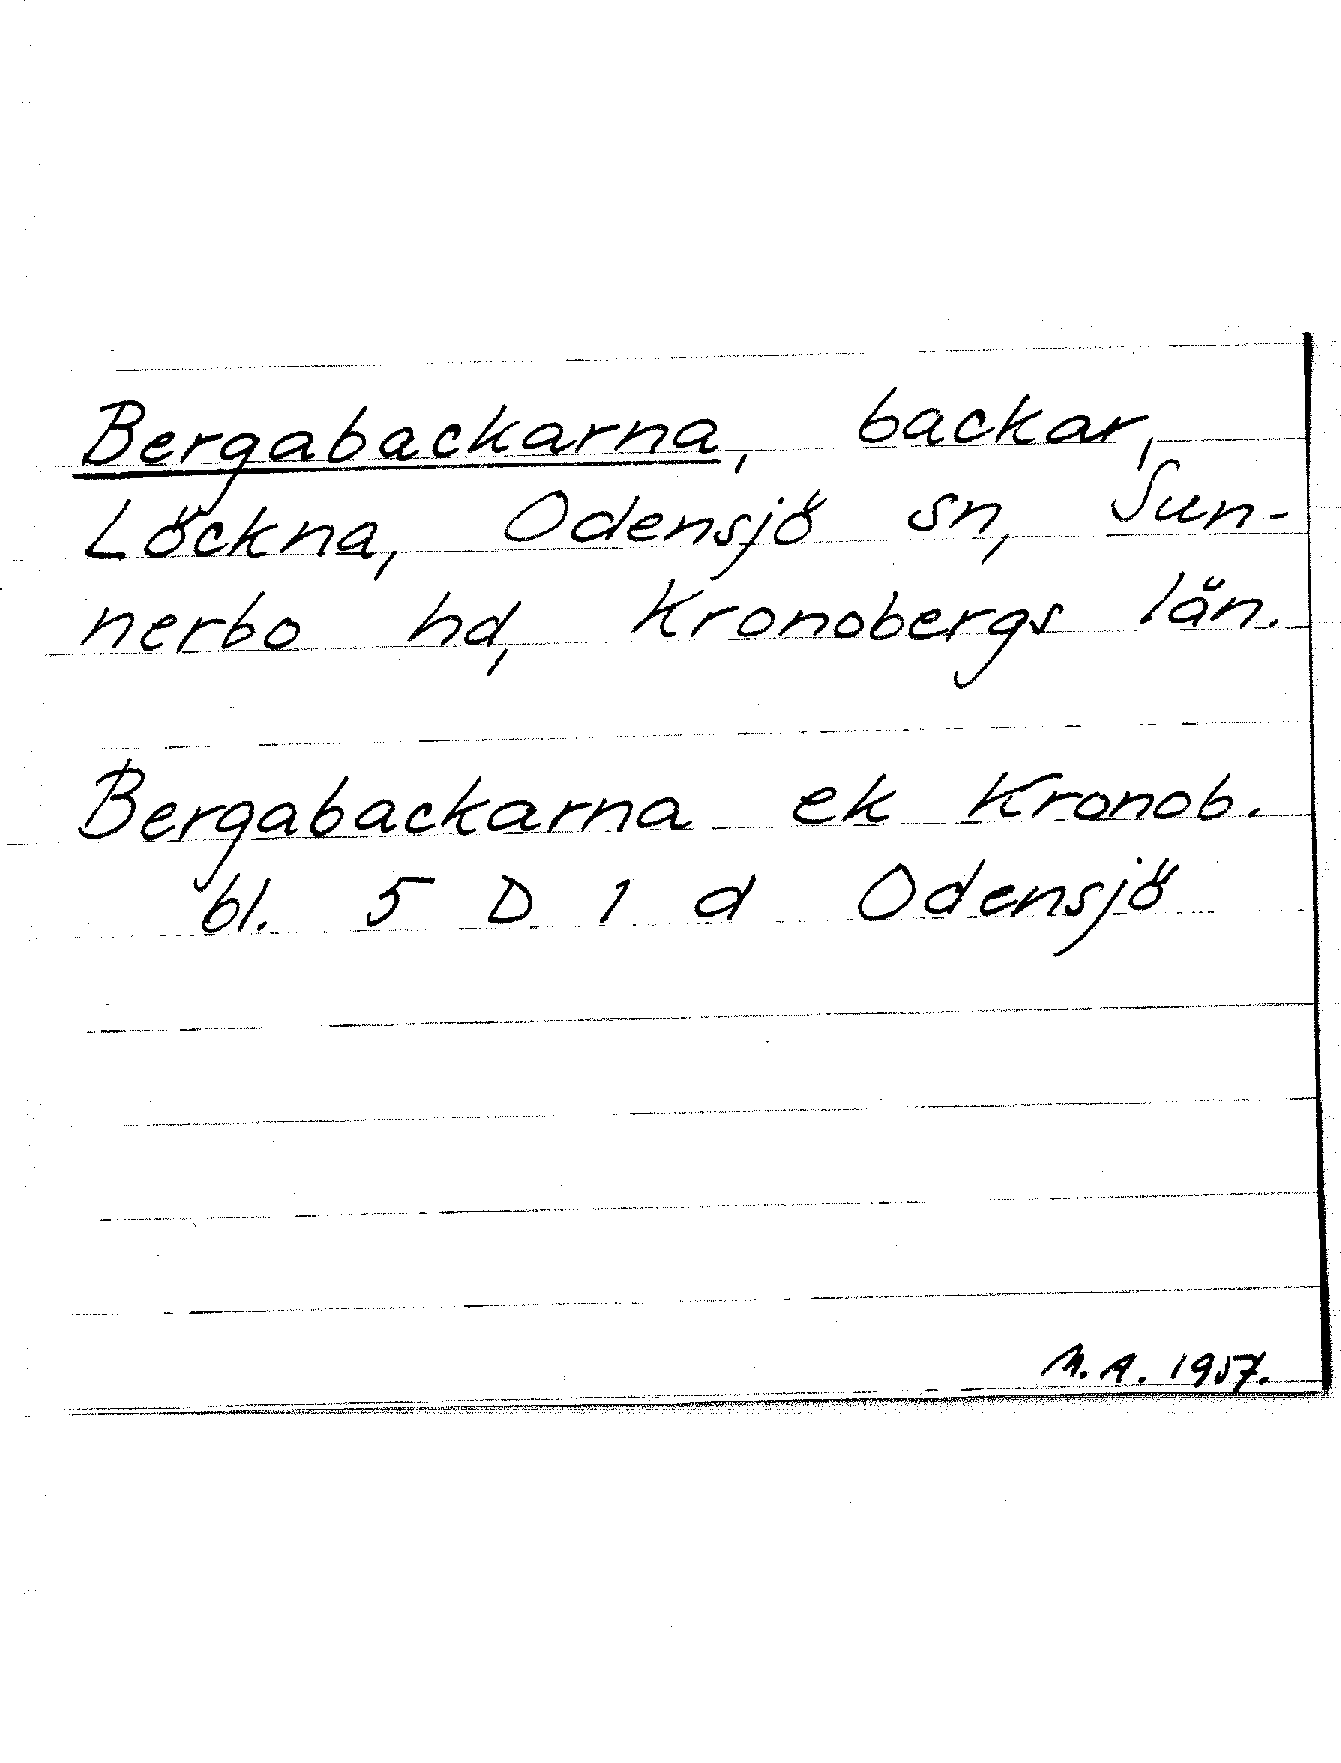 Bergabackarna, backar,
Löckna, Odensjö sn, Sun-
nerbo hd, Kronobergs län.
Bergabackarna ek Kronob.
bl. 5 D 1 d Odensjö
M.A. 1957.